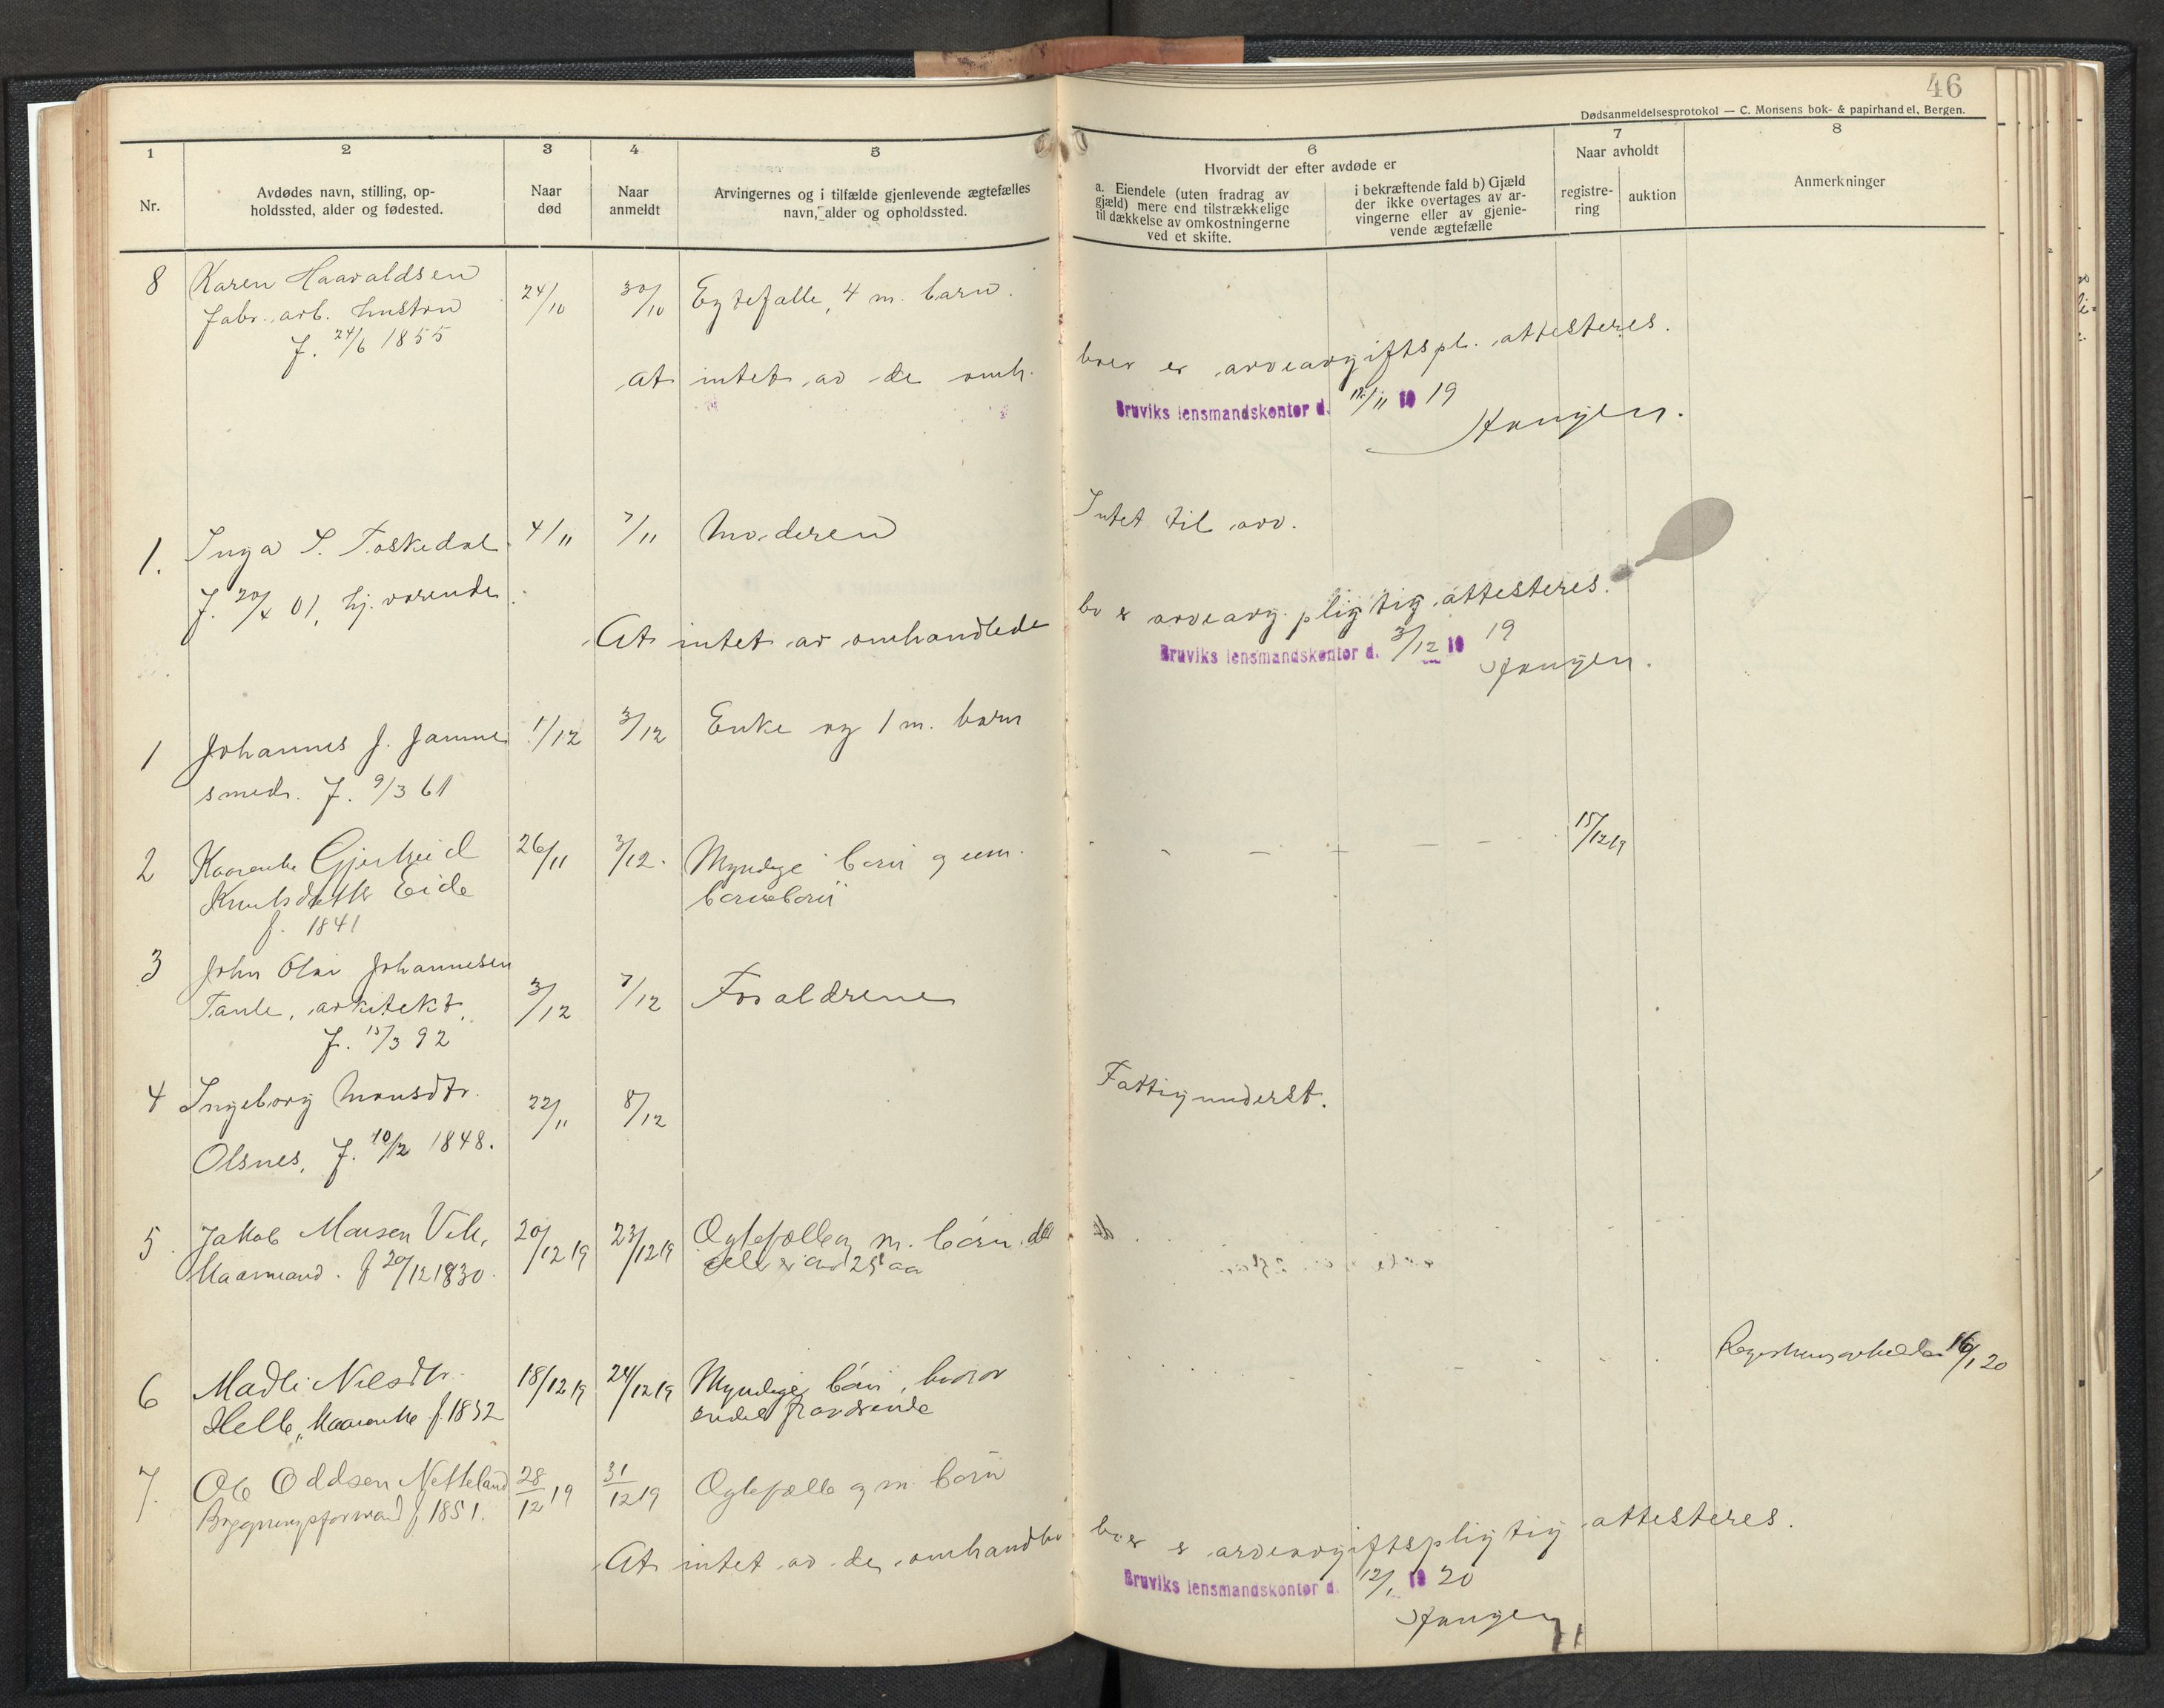 46
Dødsanmeldelsesprotokol — C. Monsens bok- & papirhandel, Bergen.
1 2 3 4 5 6 7 8
Nr.
Avdødes navn, stilling, op-
holdssted, alder og fødested.
Naar
død
Naar
anmeldt
Arvingernes og i tilfælde gjenlevende ægtefælles
navn, alder og opholdssted.
Hvorvidt der efter avdøde er
a. Eiendele (uten fradrag av
gjæld) mere end tilstrækkelige
til dækkelse av omkostningerne
ved et skifte.
i bekræftende fald b) Gjæld
der ikke overtages av ar-
vingerne eller av gjenle-
vende ægtefælle
Naar avholdt
registre-
ring
auktion
Anmerkninger
8 Karen Haavaldsen 24/10 30/10 Egtefælle, 4 m. barn.
fabr. arb. hustru
f. 24/6 1855
At intet av de omh. boer er arveavgiftspl. attesteres.
Bruviks lensmandskontor d. /11 19 19
1. Inga S. Toskedal 4/11 7/11 Moderen Intet til arv.
f. 20/4 01, hj. værende
At intet av omhandlede bo er arveavg. pligtig attesteres.
Bruviks lensmandskontor d. 3/12 19 19
1 Johannes J. Jamne 1/12 3/12 Enke og 1 m. barn
smed. f. 9/3 61
2 Kaarenke Gjertrud 26/11 3/12. Myndige børn og 15/12 19
Knutsdatter Eide barnebørn
f. 1841
3 John Olai Johannesen
Tanle, arkitekt, 3/12 7/12 Forældrene
f. 15/3 92
4 Ingeborg Monsdtr. 22/11 8/12 Fattigunderst.
Olsnes, f. 10/12 1848.
5. Jakob Monsen Vik, 20/12 19 23/12 19 Ægtefælle og m. børn.
Kaarmand. f 20/12 1830.
6 Madli Nilsdtr. 18/12 19 24/12 19 Myndige børn, hvorav 16/1 20
Helle, Kaarenke f. 1832 endel fraværende
7. Ole Oddsen Netteland 28/12 19 31/12 19 Ægtefælle og m. børn
f 1851.
At intet av de omhandl. boer er arveavgiftspligtig attesteres.
Bruviks lensmandskontor d. 12/1 19 20